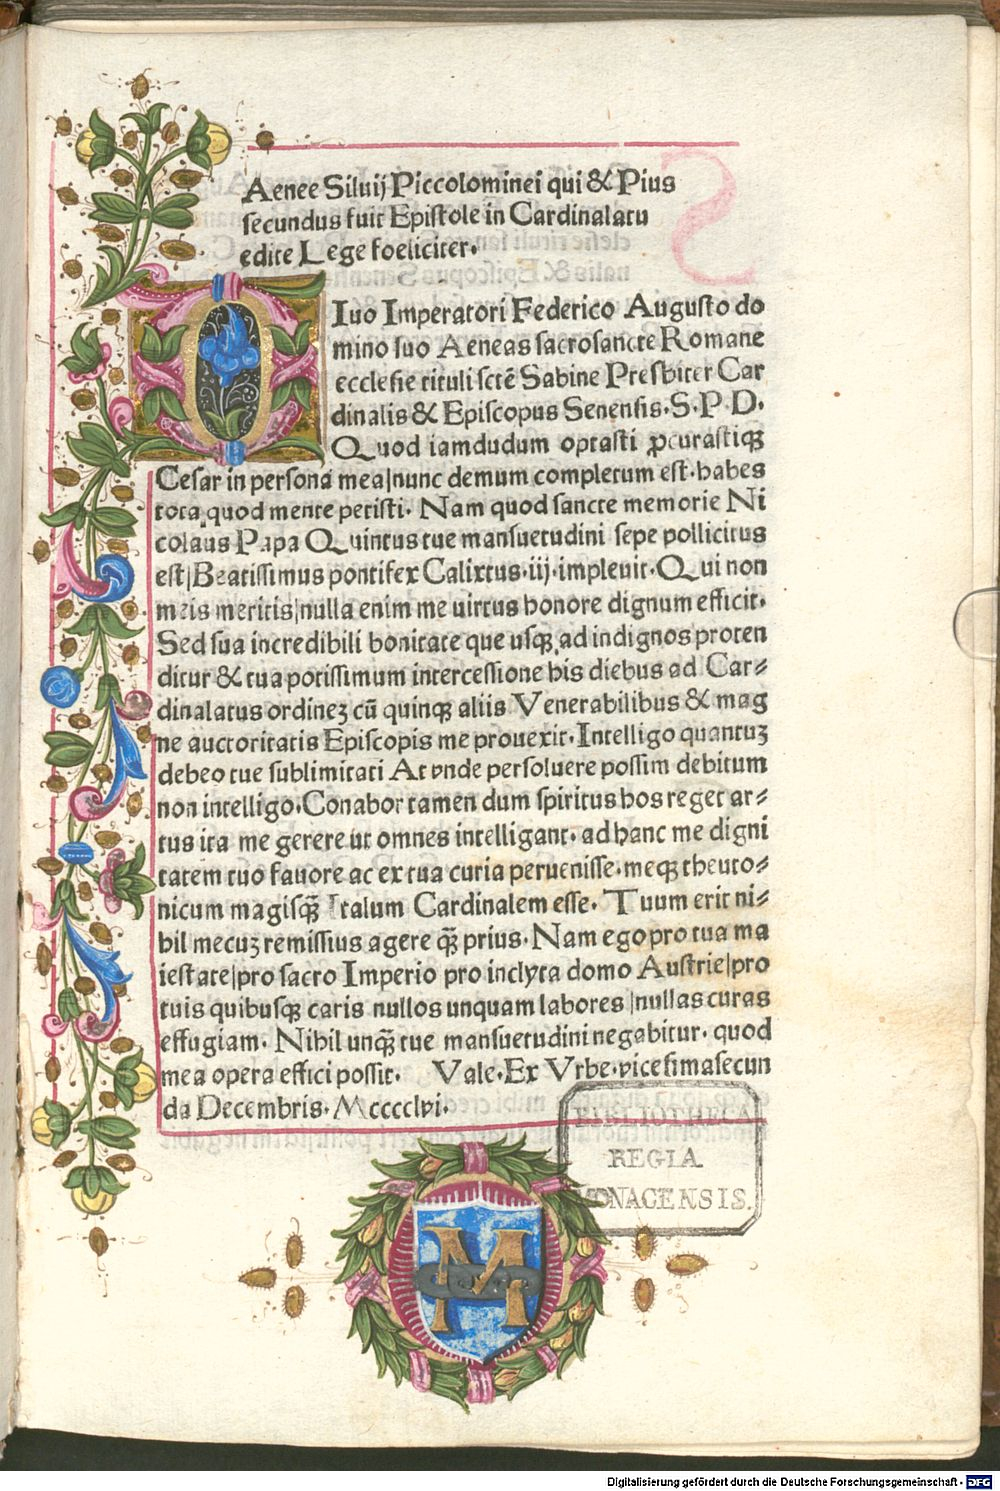 Aenee Siluij Piccolominei qui & Pius
secundus fuit Epistole in Cardinalatu
edite Lege foeliciter.
DIuo Imperatori Federico Augusto do
mino suo Aeneas sacrosancte Romane
ecclesie tituli sctẽ Sabine Presbiter Car
dinalis & Episcopus Senensis. S. P. D.
Quod iamdudum optasti ꝓcurastiqꝫ
Cesar in persona mea|nunc demum completum est. habes
tota quod mente petisti. Nam quod sancte memorie Ni
colaus Papa Quintus tue mansuetudini sepe pollicitus
est|Beatissimus pontifex Calixtus. iij. impleuit. Qui non
meis meritis|nulla enim me uirtus honore dignum efficit.
Sed sua incredibili bonitate que usqꝫ ad indignos proten
ditur & tua potissimum intercessione his diebus ad Car⸗
dinalatus ordineꝫ cũ quinqꝫ aliis Venerabilibus & mag
ne auctoritatis Episcopis me prouexit. Intelligo quantuꝫ
debeo tue sublimitati At vnde persoluere possim debitum
non intelligo. Conabor tamen dum spiritus hos reget ar⸗
tus ita me gerere ut omnes intelligant. ad hanc me digni
tatem tuo fauore ac ex tua curia peruenisse. meqꝫ theuto⸗
nicum magisqꝫ̃ Italum Cardinalem esse. Tuum erit ni⸗
hil mecuꝫ remissius agere qꝫ̃ prius. Nam ego pro tua ma
iestate|pro sacro Imperio pro inclyta domo Austrie|pro
tuis quibusqꝫ caris nullos unquam labores|nullas curas
effugiam. Nihil unqꝫ̃ tue mansuetudini negabitur. quod
mea opera effici possit. Vale. Ex Vrbe. vicesimasecun
da Decembris. Mcccclvi.
BIBLIOTHECA
REGIA
MONACENSIS.
M
Digitalisierung gefördert durch die Deutsche Forschungsgemeinschaft - DFG